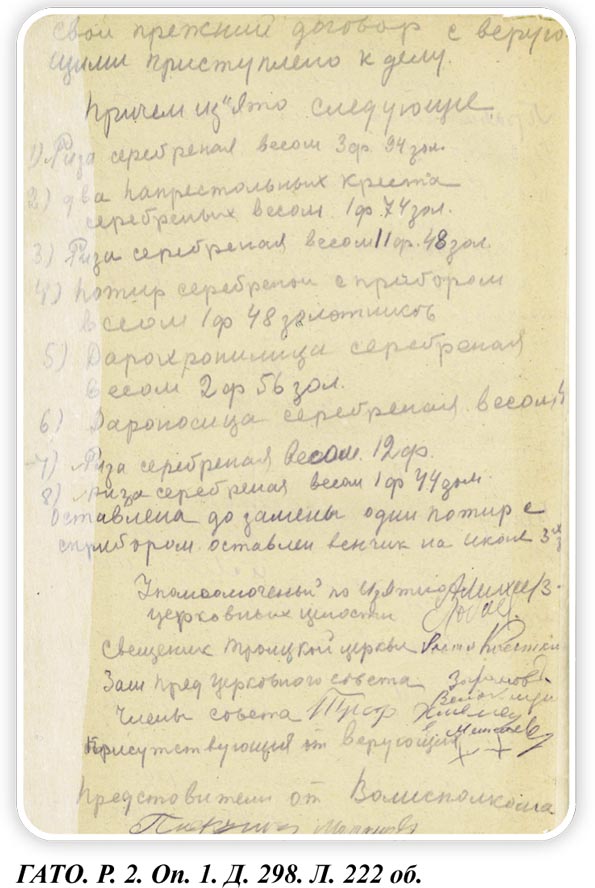 свой прежний договор с верую
щими приступлено к делу.
Причем из"ято следующие
1) Риза серебреная весом 3 ф. 94 зол.
2) два напрестольных креста
серебреных весом 1 ф. 74 зол.
3) Риза серебреная весом 11 ф. 48 зол.
4) Потир серебреной с прибором
всеом 1 ф 48 золотников
5) Дарохронилица серебреная
весом 2 ф 56 зол.
6) Дароносица серебреная весом
7) Риза серебреная весом. 12 ф.
8) Риза серебреная весом 1 ф 44 зол.
Оставлена до замены один потир с
прибором. оставлен венчик на иконе
по изятию
церковных ценостей
Свещеник Троицкой церквы
Зам пред церковного совета
Члены совета
Присутствующия от верующих
Представители от Волисполкома
ГАТО. Р. 2. Оп. 1. Д. 298. Л. 222 об.